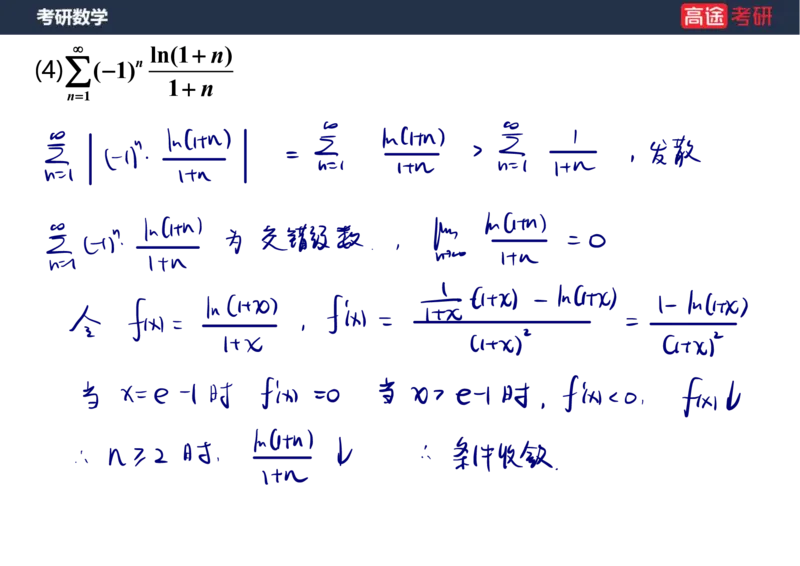 考研数学
高途考研
(4) $\sum_{n=1}^{\infty}(-1)^n \frac{\ln(1+n)}{1+n}$
$\sum_{n=1}^{\infty}\left|(-1)^n \cdot \frac{\ln(1+n)}{1+n}\right| = \sum_{n=1}^{\infty} \frac{\ln(1+n)}{1+n} > \sum_{n=1}^{\infty} \frac{1}{1+n}$ ,发散
$\sum_{n=1}^{\infty}(-1)^n \cdot \frac{\ln(1+n)}{1+n}$ 为交错级数., $\lim_{n\to\infty} \frac{\ln(1+n)}{1+n} = 0$
令 $f(x) = \frac{\ln(1+x)}{1+x}$ , $f'(x) = \frac{\frac{1}{1+x}\cdot(1+x) - \ln(1+x)}{(1+x)^2} = \frac{1-\ln(1+x)}{(1+x)^2}$
当 x=e-1时 f'(x)=0 当 x>e-1时, f'(x)<0. f(x)↓
∴ n≥2 时. $\frac{\ln(1+n)}{1+n}$ ↓ ∴ 条件收敛.